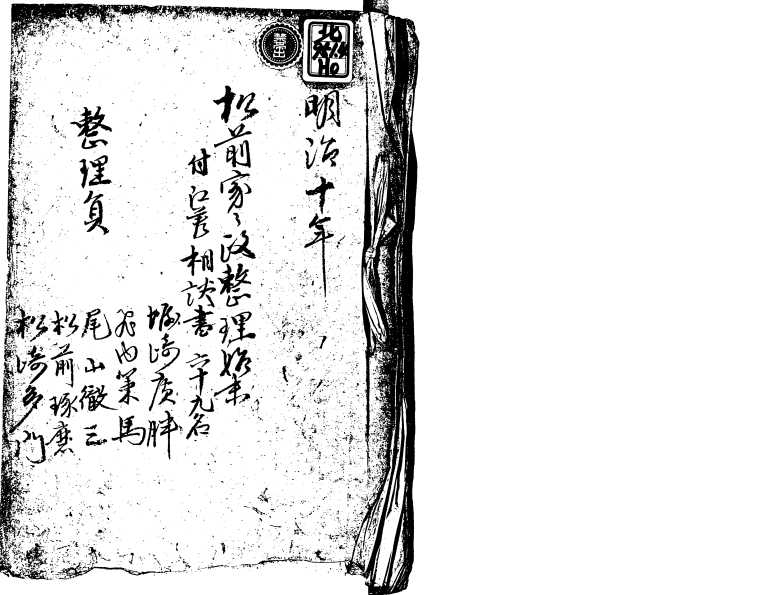 明治十年
松前家々政整理始末
付江差相談書 六十九名
整理員
堀崎廣胖
内策馬
尾山徹三
松前琢磨
松崎多門